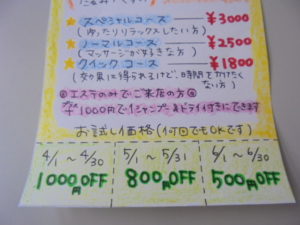 スペシャルコース ¥3000
(ゆったりリラックスしたい方)
ノーマルコース ¥2500
(マッサージが好きな方)
クイックコース ¥1800
(効果は得られるけど、時間をかけたくない方)
エステのみでご来店の方
1000円で1シャンプー&ドライ付きにできます
お試し価格(何回でもOKです)
4/1 ~ 4/30
1000円OFF
5/1 ~ 5/31
800円OFF
6/1 ~ 6/30
500円OFF